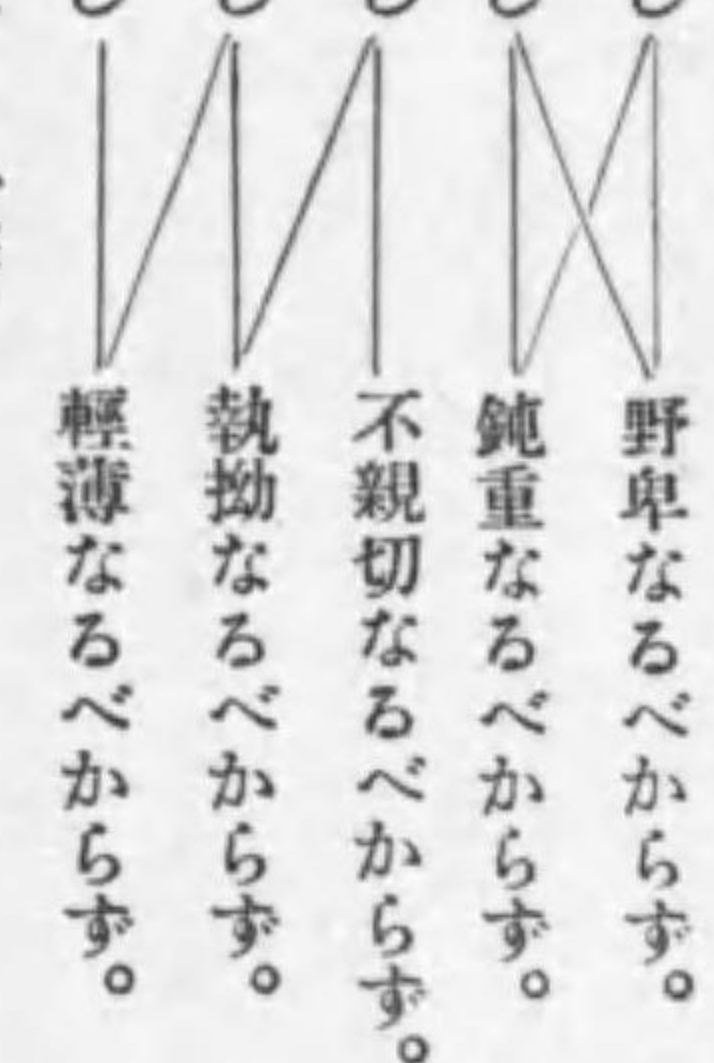 野卑なるべからず。
鈍重なるべからず。
不親切なるべからず。
執拗なるべからず。
輕薄なるべからず。